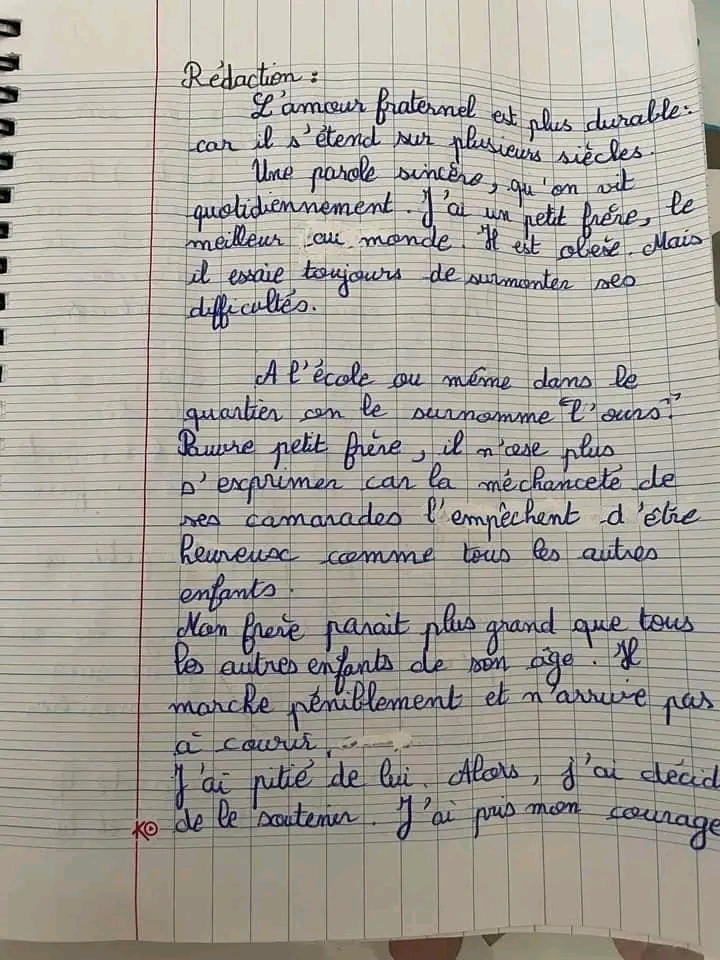 Rédaction :
L'amour fraternel est plus durable :
car il s'étend sur plusieurs siècles.
Une parole sincère, qu'on vit
quotidiennement. J'ai un petit frère, le
meilleur au monde. Il est obèse. Mais
il essaie toujours de surmonter ses
difficultés.
A l'école ou même dans le
quartier on le surnomme "l'ours".
Pauvre petit frère, il n'ose plus
s'exprimer car la méchanceté de
ses camarades l'empêchent d'être
heureux comme tous les autres
enfants.
Mon frère parait plus grand que tous
les autres enfants de son âge. Il
marche péniblement et n'arrive pas
à courir.
J'ai pitié de lui. Alors, j'ai décid
de le soutenir. J'ai pris mon courage